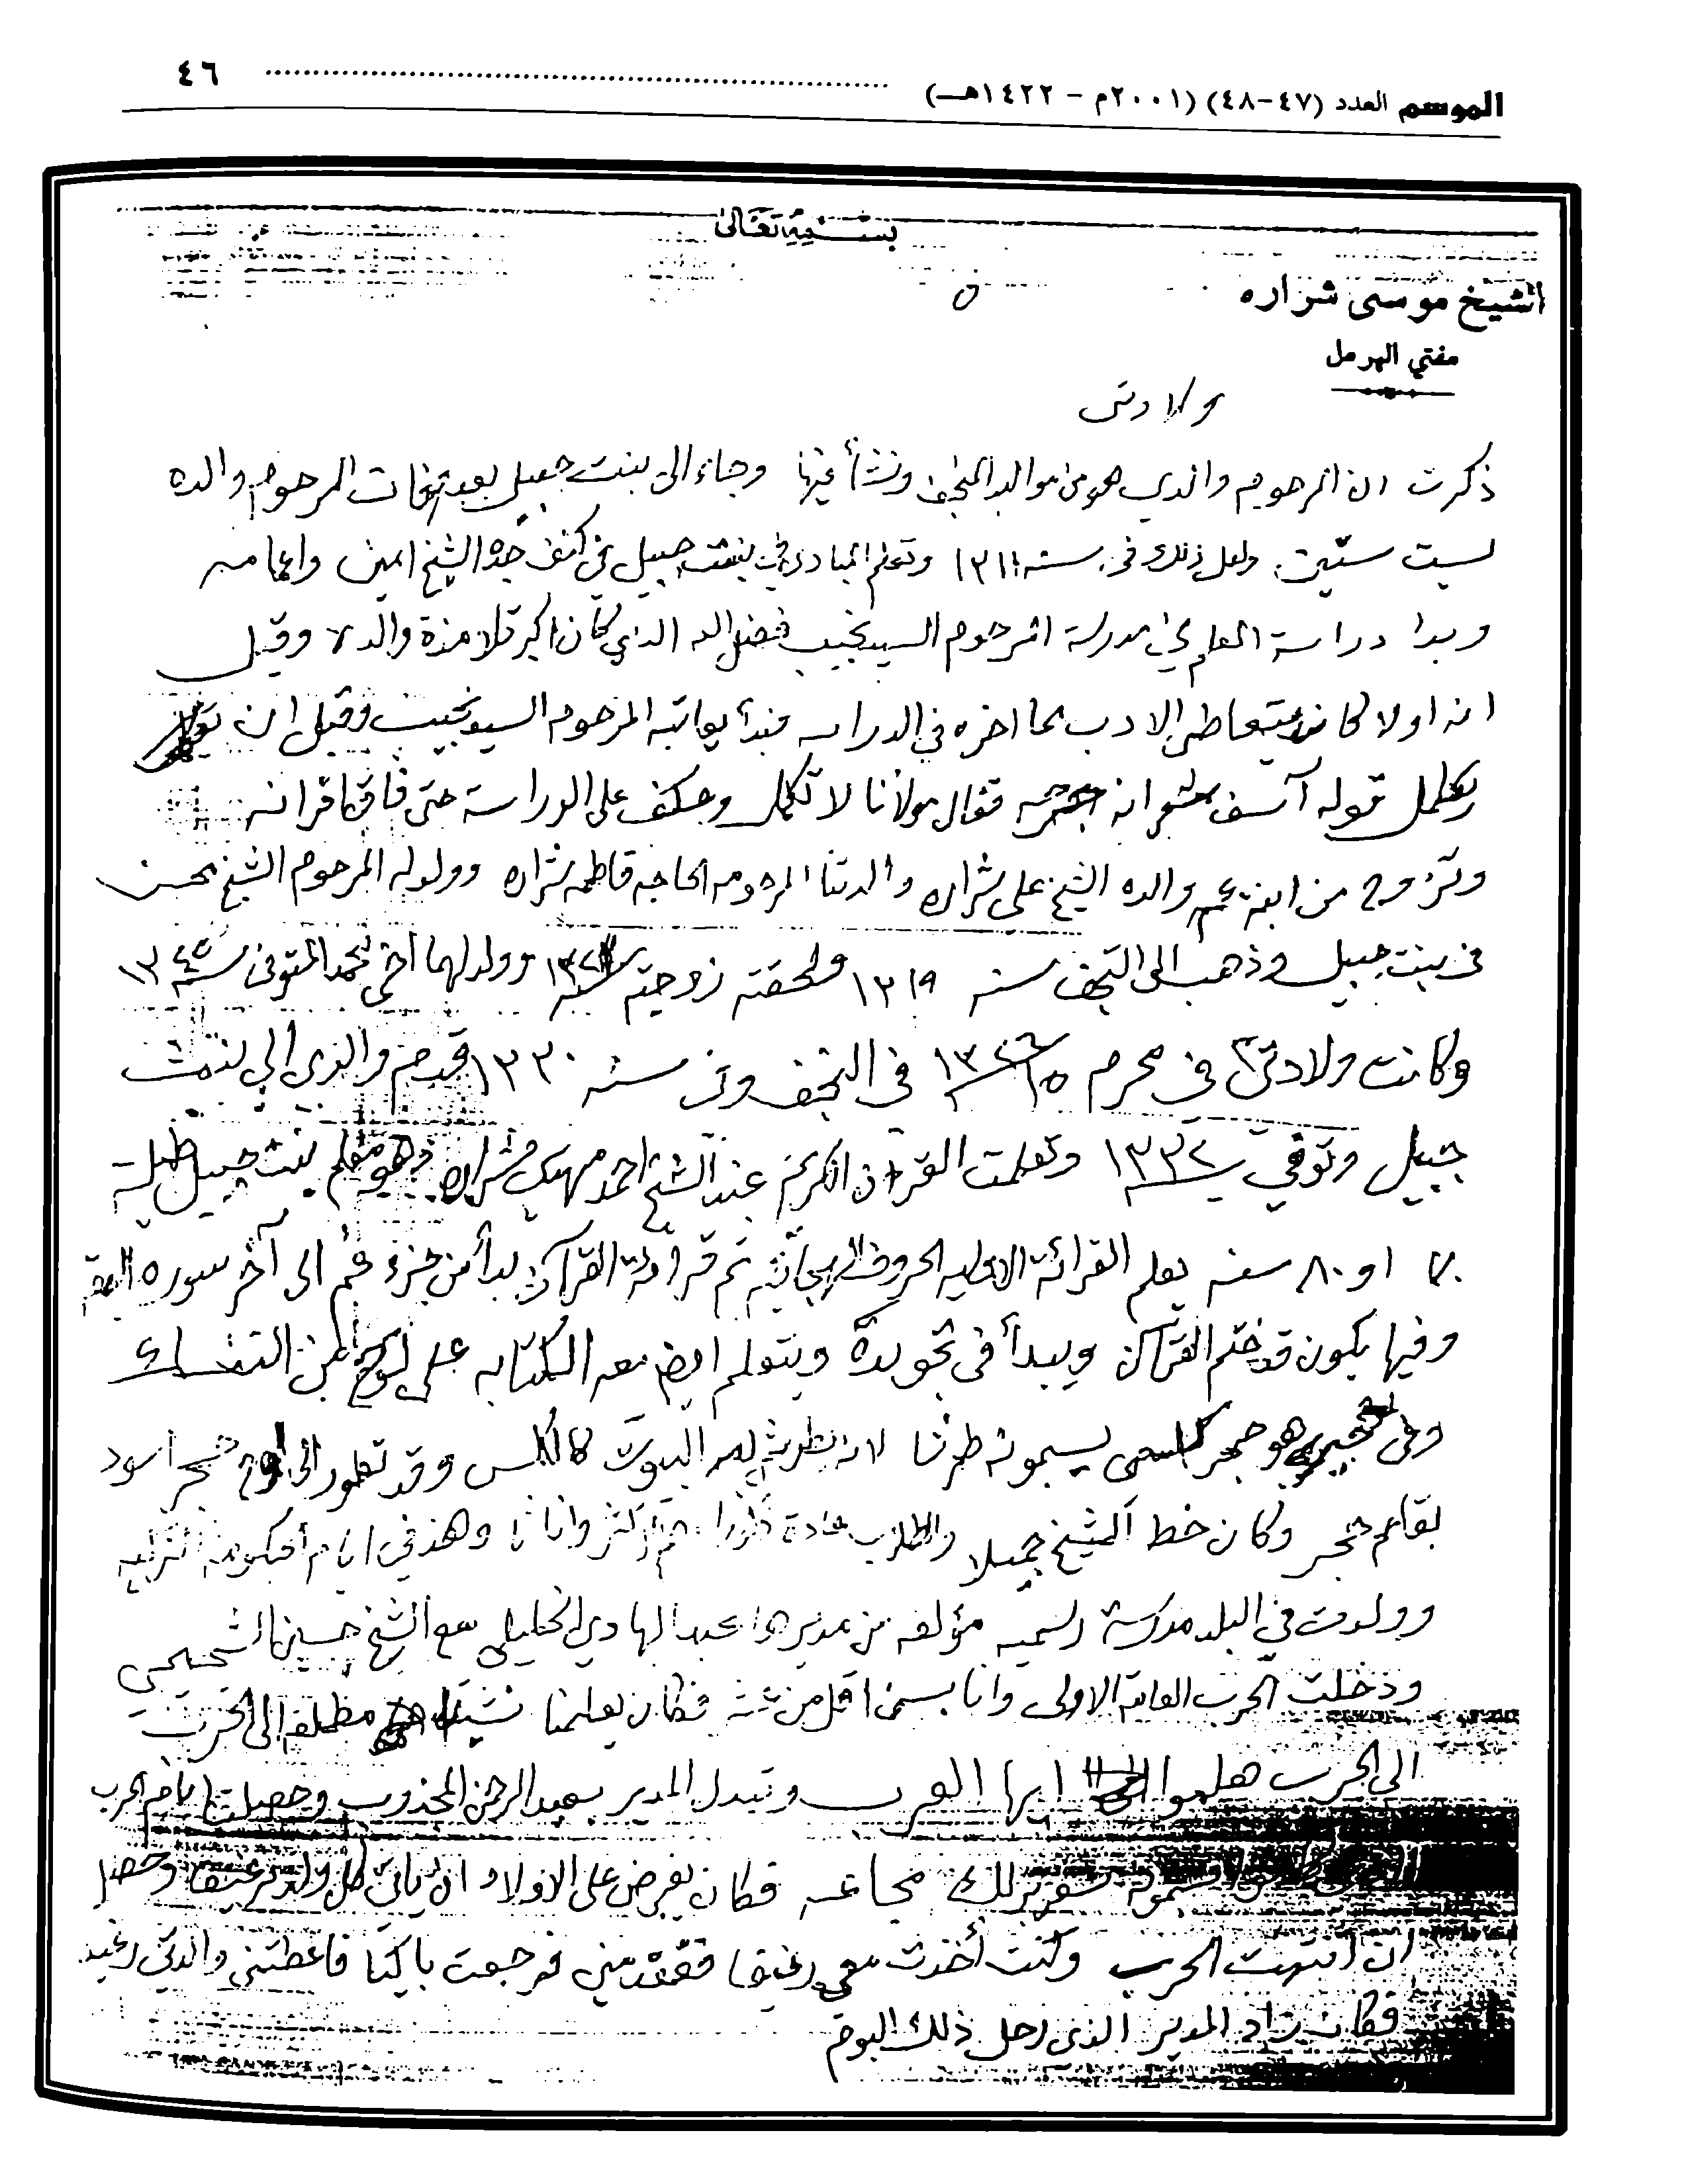 الموسم العدد (٤٧-٤٨) (٢٠٠١م - ١٤٢٢هـ) ٤٦
بسمه تعالى
الشيخ موسى شراره
مفتي الهرمل
ولادتى
ذكرت ان المرحوم والدي هو من مواليد النجف ونشأ فيها وجاء الى بنت جبيل بعد المرحوم والده
لست سنين ولعل ذلك في سنة ١٣١١ وتعلم المبادئ في بنت جبيل في كنف جده الشيخ امين واعمامه
وبدا دراسة العلم في مدرسة المرحوم السيد نجيب فضل الله الذي كان اكبر تلامذة والده وقيل
انه اولا كان يتعاطى الادب مما اخره في الدراسه فبدأ يعاتبه المرحوم السيد نجيب وقبل ان
يكمل قوله آسف فقال مولانا لا تكمل وعكف على الدراسة حتى فاق اقرانه
وتزوج من ابنة عم والده الشيخ على شراره والدتنا المرحومه الحاجه فاطمه شراره وولد له المرحوم الشيخ محسن
في بنت جبيل وذهب الى النجف سنه ١٣١٩ ولحقته زوجته وولد لهما اخي محمد المتوفى سنة ١٣٤٥
وكانت ولادتي في محرم في النجف وفي سنه ١٣٣٠ قدم والدي الى بنت
جبيل وتوفي وتعلمت القرآن الكريم عند الشيخ احمد مهدي شراره وهو معلم بنت جبيل طيلة
٧٠ او ٨٠ سنه يعلم القرائة الاوليه الحروف الهجائيه ثم قرائة القرآن بدأ من جزء عم الى آخر سوره البقره
وفيها يكون قد ختم القرآن ويبدأ في تجويده ويتعلم ايضا معه الكتابه على لوح من التنك
وهو حجر كلسي يسمونه طرشا لانه يطرش به البيوت كالكلس وقد تطور الى لوح حجر اسود
بقلم حجر وكان خط الشيخ جميلا والطلاب عادة ذكورا واناثا وهذه في ايام الحكومه التركيه
وولدت في البلد مدرسة رسميه مؤلفه من مديرها عبد الهادي الخليلي مع الشيخ حسين
ودخلت الحرب العامة الاولى وانا بسن اقل من فكان يعلمنا نشيد مطلعه الى الحرب
الى الحرب هلموا ايها العرب وتبدل المدير بعبد الرحمن المجذوب وحصلت ايام الحرب
مجاعه فكان يفرض على الاولاد ان يأتي كل ولد برغيف وحصل
ان انتهت الحرب وكنت أخذت معي رغيفا ففقد مني فرجعت باكيا فاعطتني والدتي رغيف
فكان زاد المدير الذي رحل ذلك اليوم